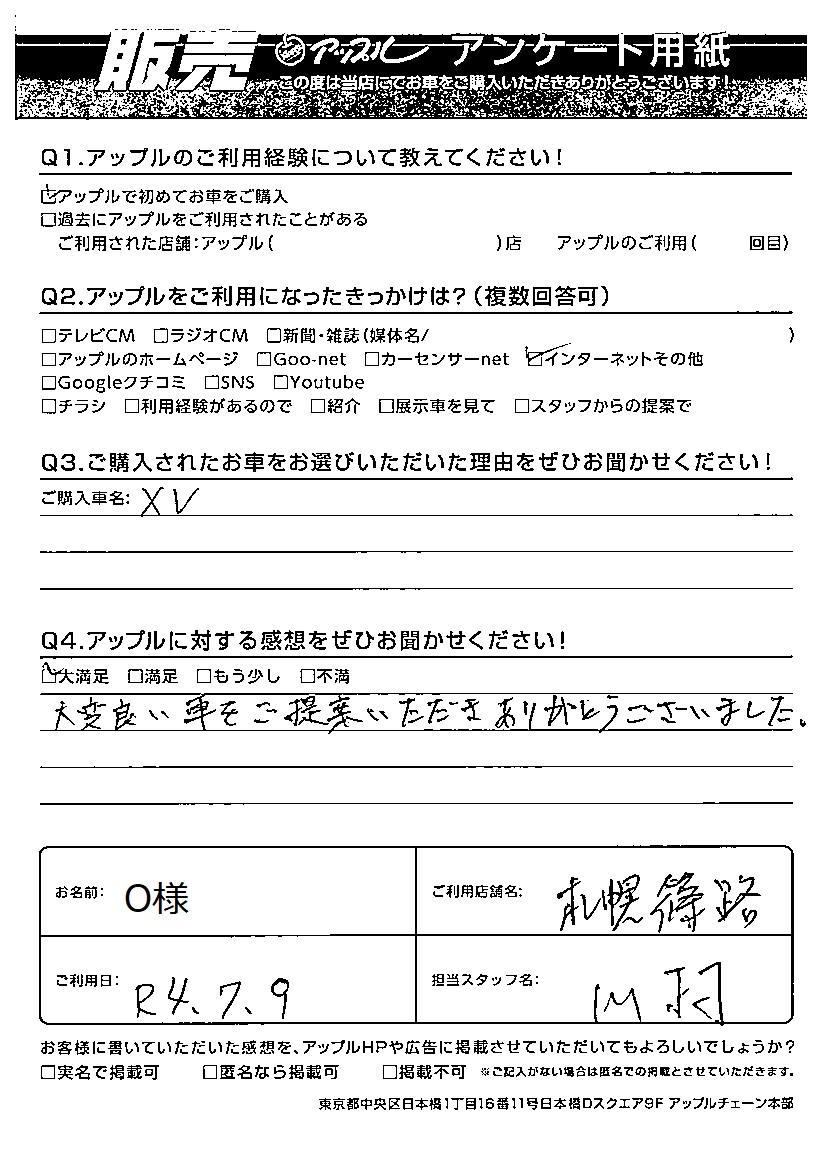 販売 アップル アンケート用紙
この度は当店にてお車をご購入いただきありがとうございます!
Q1.アップルのご利用経験について教えてください!
☑アップルで初めてお車をご購入
□過去にアップルをご利用されたことがある
ご利用された店舗:アップル( )店 アップルのご利用( 回目)
Q2.アップルをご利用になったきっかけは?(複数回答可)
□テレビCM □ラジオCM □新聞・雑誌(媒体名/ )
□アップルのホームページ □Goo-net □カーセンサーnet ☑インターネットその他
□Googleクチコミ □SNS □Youtube
□チラシ □利用経験があるので □紹介 □展示車を見て □スタッフからの提案で
Q3.ご購入されたお車をお選びいただいた理由をぜひお聞かせください!
ご購入車名: XV
Q4.アップルに対する感想をぜひお聞かせください!
☑大満足 □満足 □もう少し □不満
大変良い車をご提案いただきありがとうございました。
お名前: O様 ご利用店舗名: 札幌篠路
ご利用日: R4.7.9 担当スタッフ名: 川村
お客様に書いていただいた感想を、アップルHPや広告に掲載させていただいてもよろしいでしょうか?
□実名で掲載可 □匿名なら掲載可 □掲載不可 ※ご記入がない場合は匿名での掲載とさせていただきます。
東京都中央区日本橋1丁目16番11号日本橋Dスクエア9F アップルチェーン本部